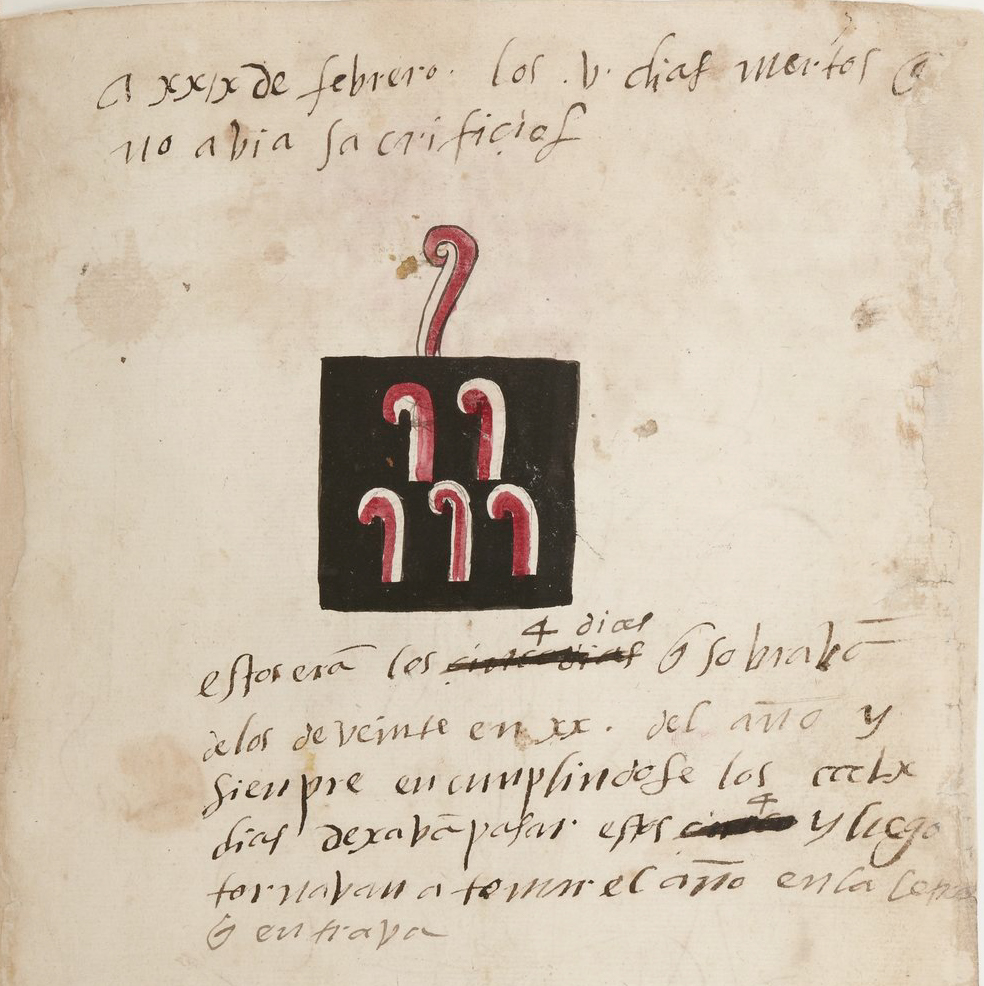 a xxix de febrero. los .v. dias mertos q̃
no abia sacrificios
4 dias
estos erā los cinco dias q̃ sobrabā
delos de veinte en xx. del año y
sienpre en cunplindose los ccclx
4
dias dexabā pasar estos cinco y luego
tornavan a tomar el año en la letra
q̃ entrava